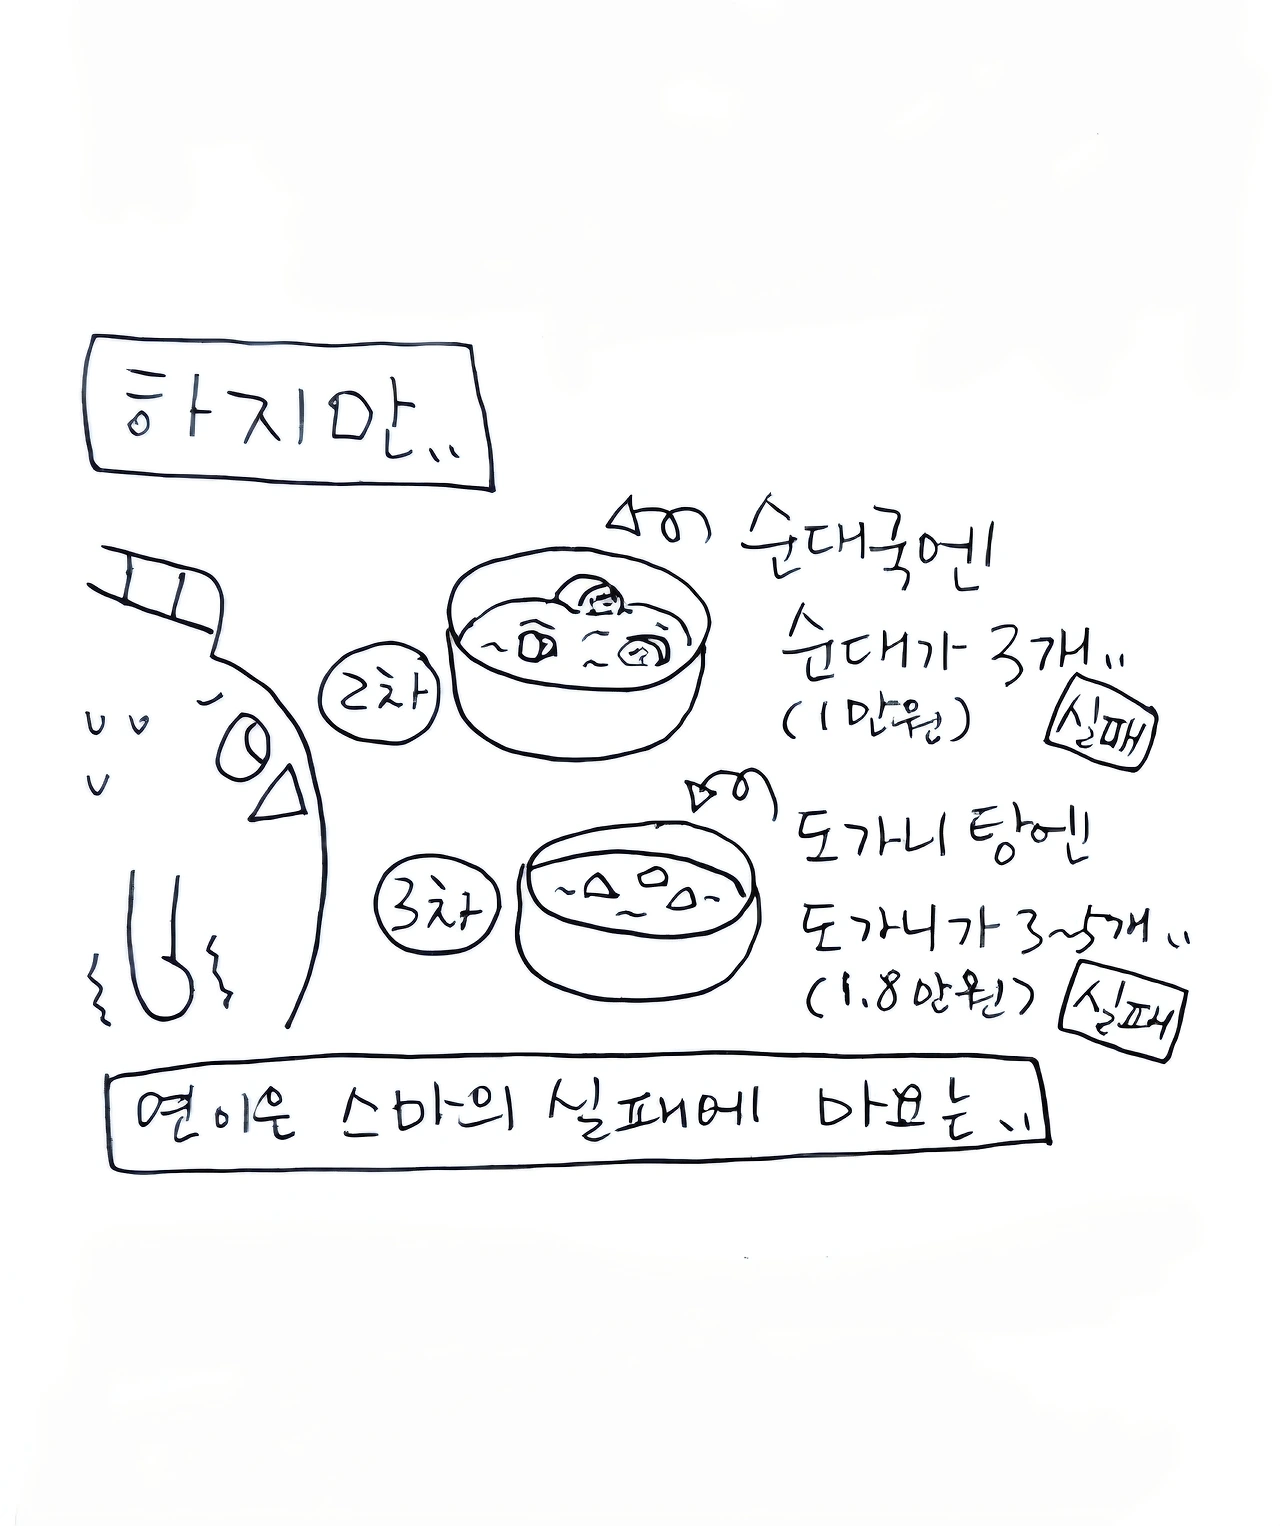 하지만..
순대국엔
순대가 3개..
2차
(1만원)
실패
도가니탕엔
3차
도가니가 3~5개..
(1.8만원)
실패
연이은 스마의 실패에 마요는..